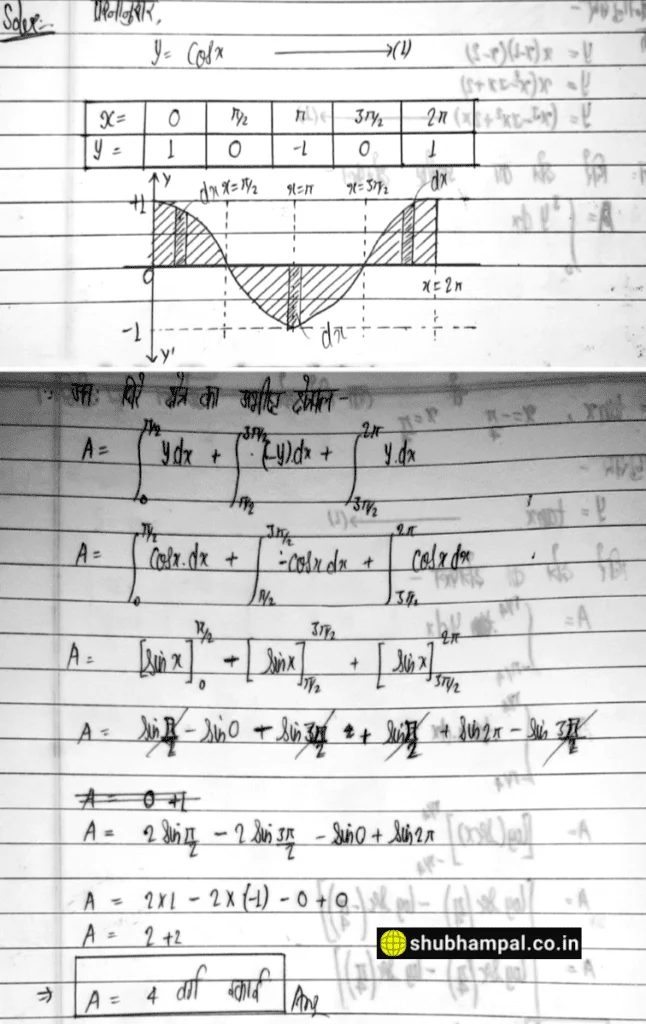 Soln:- प्रश्नानुसार,
y = cosx ⟶(1)
x= 0 π/2 π 3π/2 2π
y = 1 0 -1 0 1
Y
+1 dx x=π/2 x=π x=3π/2 dx
0 x=2π
-1 dx
Y'
∵ अतः घिरे क्षेत्र का अभीष्ट क्षेत्रफल -
A = ∫₀^{π/2} y dx + ∫_{π/2}^{3π/2} (-y)dx + ∫_{3π/2}^{2π} y.dx
A = ∫₀^{π/2} cosx.dx + ∫_{π/2}^{3π/2} -cosx dx + ∫_{3π/2}^{2π} cosx dx
A = [sin x]₀^{π/2} - [sinx]_{π/2}^{3π/2} + [sinx]_{3π/2}^{2π}
A = sin π/2 - sin0 - sin 3π/2 + sin π/2 + sin2π - sin 3π/2
A = 0 + 1
A = 2 sin π/2 - 2 sin 3π/2 - sin0 + sin2π
A = 2x1 - 2x(-1) - 0 + 0
A = 2+2
shubhampal.co.in
⇒ A = 4 वर्ग इकाई Ans